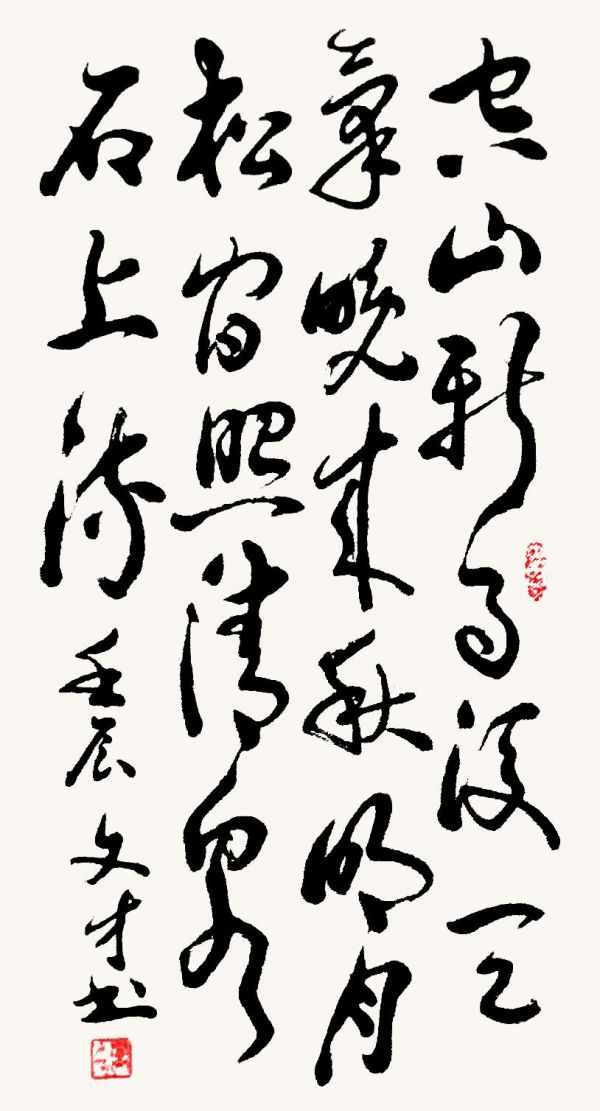 空山新雨後天
氣晚來秋明月
松間照清泉
石上流 壬辰 文才书